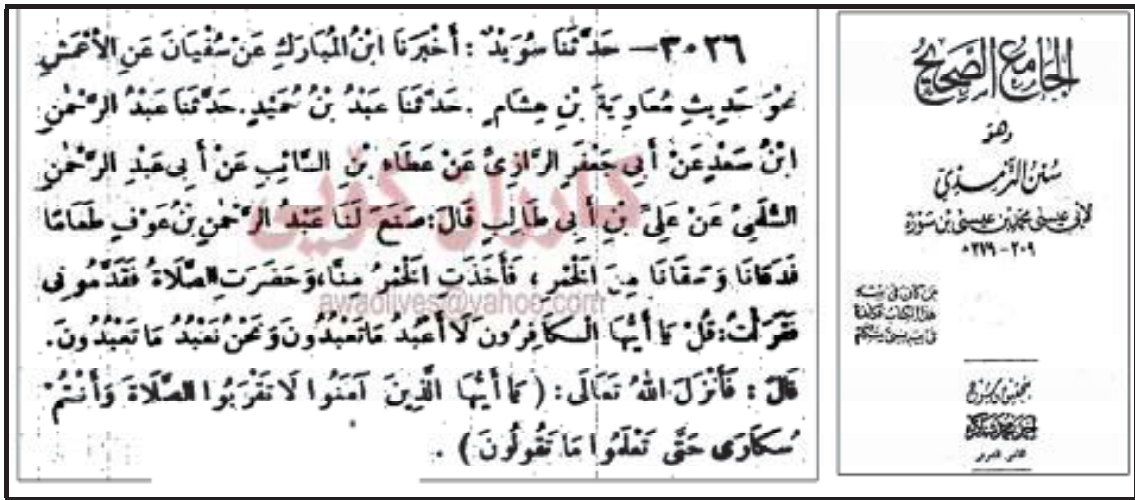 ٣٠٢٦ — حَدَّثَنَا سُوَيْدٌ : أَخْبَرَنَا ابْنُ الْمُبَارَكِ عَنْ سُفْيَانَ عَنِ الْأَعْمَشِ
نَحْوَ حَدِيثِ مُعَاوِيَةَ بْنِ هِشَامٍ . حَدَّثَنَا عَبْدُ بْنُ حُمَيْدٍ . حَدَّثَنَا عَبْدُ الرَّحْمٰنِ
ابْنُ سَعْدٍ عَنْ أَبِي جَعْفَرٍ الرَّازِيِّ عَنْ عَطَاءِ بْنِ السَّائِبِ عَنْ أَبِي عَبْدِ الرَّحْمٰنِ
السُّلَمِيِّ عَنْ عَلِيِّ بْنِ أَبِي طَالِبٍ قَالَ : صَنَعَ لَنَا عَبْدُ الرَّحْمٰنِ بْنُ عَوْفٍ طَعَامًا
فَدَعَانَا وَسَقَانَا مِنَ الْخَمْرِ ، فَأَخَذَتِ الْخَمْرُ مِنَّا ، وَحَضَرَتِ الصَّلَاةُ فَقَدَّمُونِي
فَقَرَأْتُ : قُلْ يَا أَيُّهَا الْكَافِرُونَ لَا أَعْبُدُ مَا تَعْبُدُونَ وَنَحْنُ نَعْبُدُ مَا تَعْبُدُونَ .
قَالَ : فَأَنْزَلَ اللّٰهُ تَعَالَى : ( يَا أَيُّهَا الَّذِينَ آمَنُوا لَا تَقْرَبُوا الصَّلَاةَ وَأَنْتُمْ
سُكَارَى حَتَّى تَعْلَمُوا مَا تَقُولُونَ ) .
awaolives@yahoo.com
الجامع الصحيح
وهو
سنن الترمذي
لأبي عيسى محمد بن عيسى بن سورة
٢٠٩ - ٢٧٩ هـ
من كان في بيته
هذا الكتاب فكأنما
في بيته نبي يتكلم
بتحقيق وشرح
أحمد محمد شاكر
القاضي الشرعي